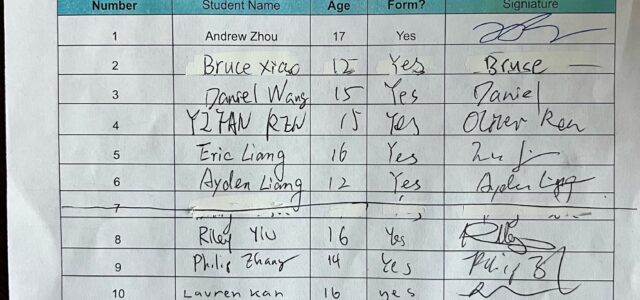 Number Student Name Age Form? Signiature
1 Andrew Zhou 17 Yes
2 Bruce xiao 12 Yes Bruse
3 Daniel Wang 15 Yes Daniel
4 YIFAN REN 15 Yes Oliver Ren
5 Eric Liang 16 Yes
6 Ayden Liang 12 Yes Ayden Liang
7
8 Riley YIU 16 Yes Riley
9 Philip Zhang 14 Yes Philip Z
10 Lauren Kan 16 yes